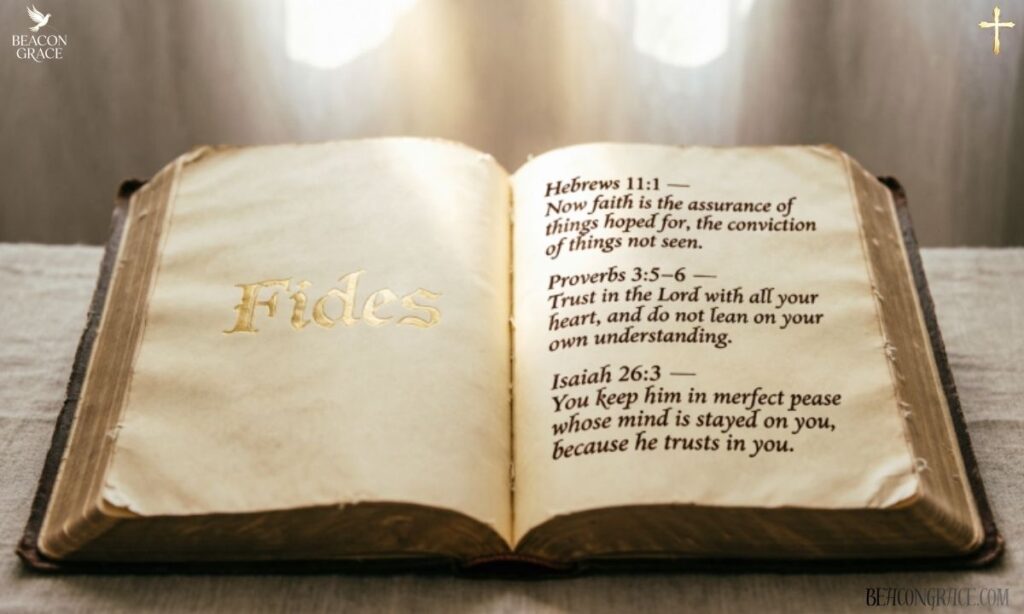 BEACON
GRACE
Fides
Hebrews 11:1 —
Now faith is the assurance of
things hoped for, the conviction
of things not seen.
Proverbs 3:5–6 —
Trust in the Lord with all your
heart, and do not lean on your
own understanding.
Isaiah 26:3 —
You keep him in merfect pease
whose mind is stayed on you,
because he trusts in you.
BEACONGRACE.COM